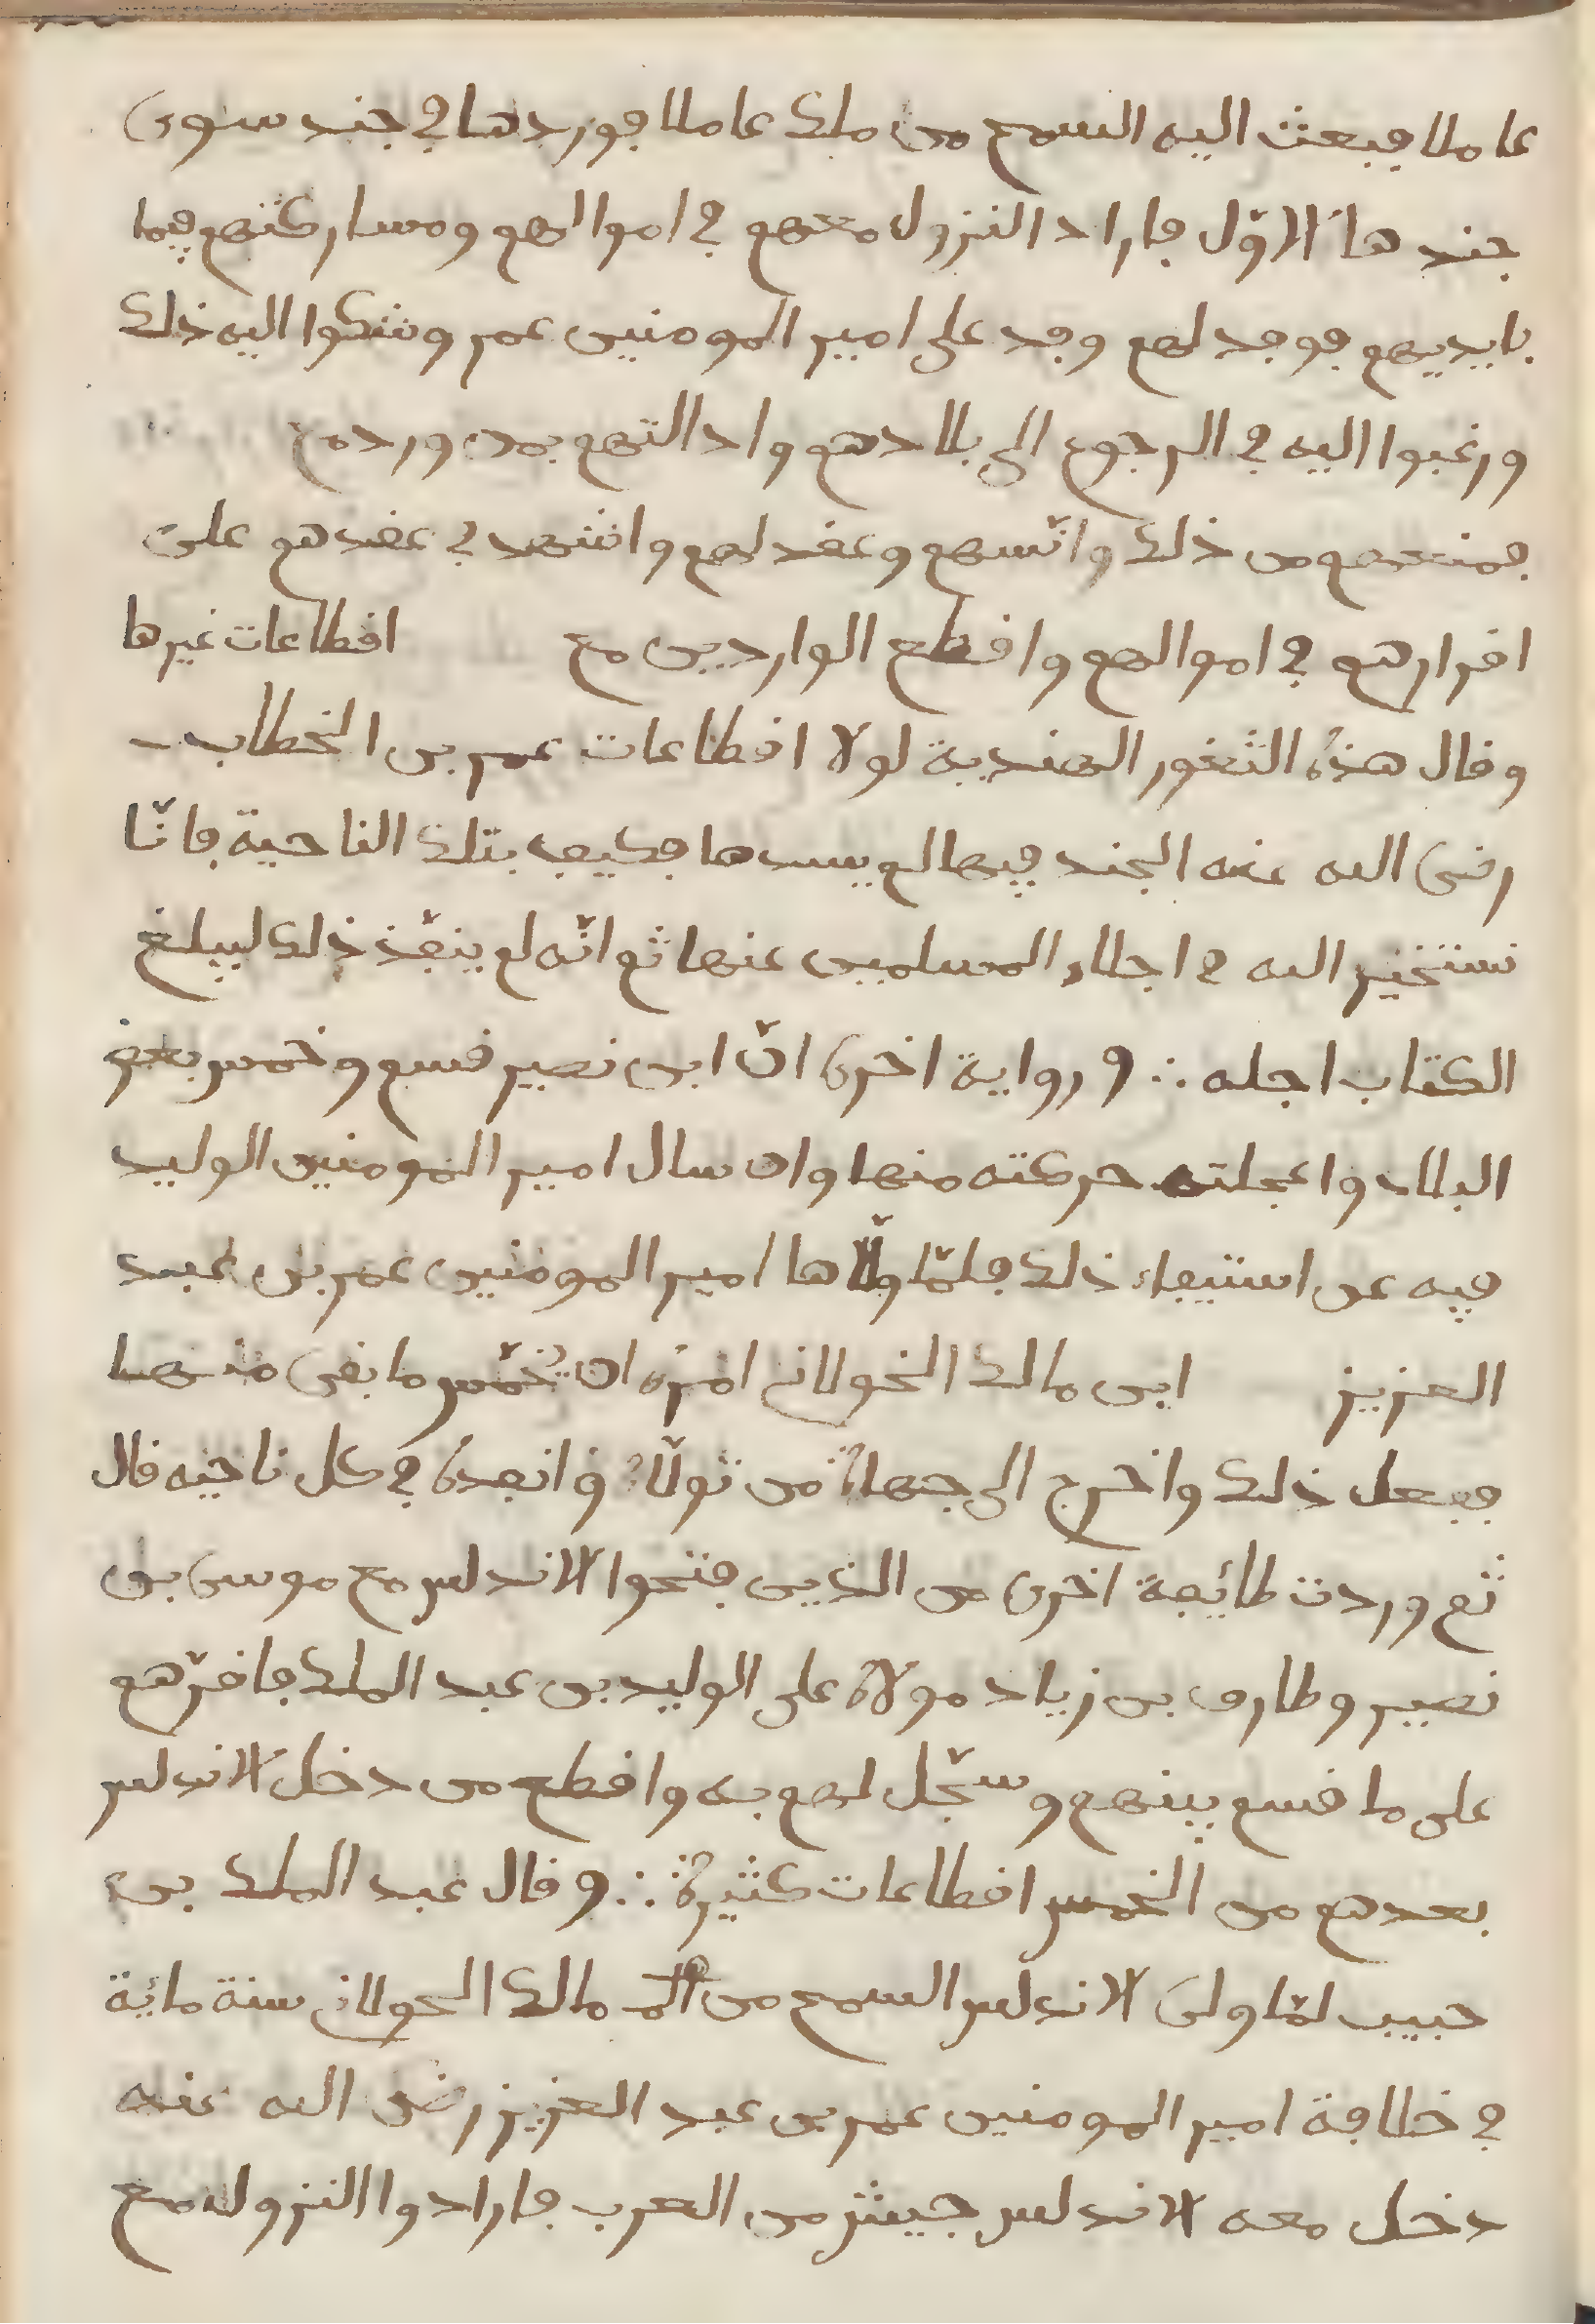 عاملا فبعث اليه السمح من ملك عاملا فوردها في جند سوى
جندها الاوّل فاراد النزول معهم في اموالهم ومساركتهم فيما
بايديهم فوجد لهم وجد على امير المومنين عمر وشكوا اليه ذلك
ورغبوا اليه في الرجوع الى بلادهم وادالتهم بمن ورد مع
فمنعهم من ذلك وانّسهم وعقد لهم واشهد في عقدهم على
اقرارهم في اموالهم واقطع الواردين مع اقطاعات غيرها
وقال هذه الثغور الهندية لولا اقطاعات عمر بن الخطاب
رضى الله عنه الجند فيها لم يسدها فكيف بتلك الناحية فانّا
نستخير الله في اجلاء المسلمين عنها ثم انّه لم ينفّذ ذلك ليبلغ
الكتاب اجله ∴ وروايه اخرى انّ ابن نصير قسم وخمس بعض
البلاد واعجلته حركته منها وان سال امير المومنين الوليد
فيه عن استيفاء ذلك فلمّا ولّاها امير المومنين عمر بن عبد
العزيز ابن مالك الخولاني امره ان يُخمّس ما بقى منها
ففعل ذلك واخرج الى جهاته من تولّاه وانفده في كل ناحيه قال
ثم وردت طائفة اخرى من الذين فتحوا الاندلس مع موسى بن
نصير وطارق بن زياد مولاه على الوليد بن عبد الملك فاقرّهم
على ما قسم بينهم وسجّل لهم به واقطع من دخل الاندلس
بعدهم من الخمس اقطاعات كثيرة ∴ وقال عبد الملك بن
حبيب لمّا ولى الاندلس السمح من مالك الحولاني سنة مائة
في خلافة امير المومنين عمر بن عبد العزيز رضى الله عنه
دخل معه الاندلس جيش من العرب فارادوا النزول مع